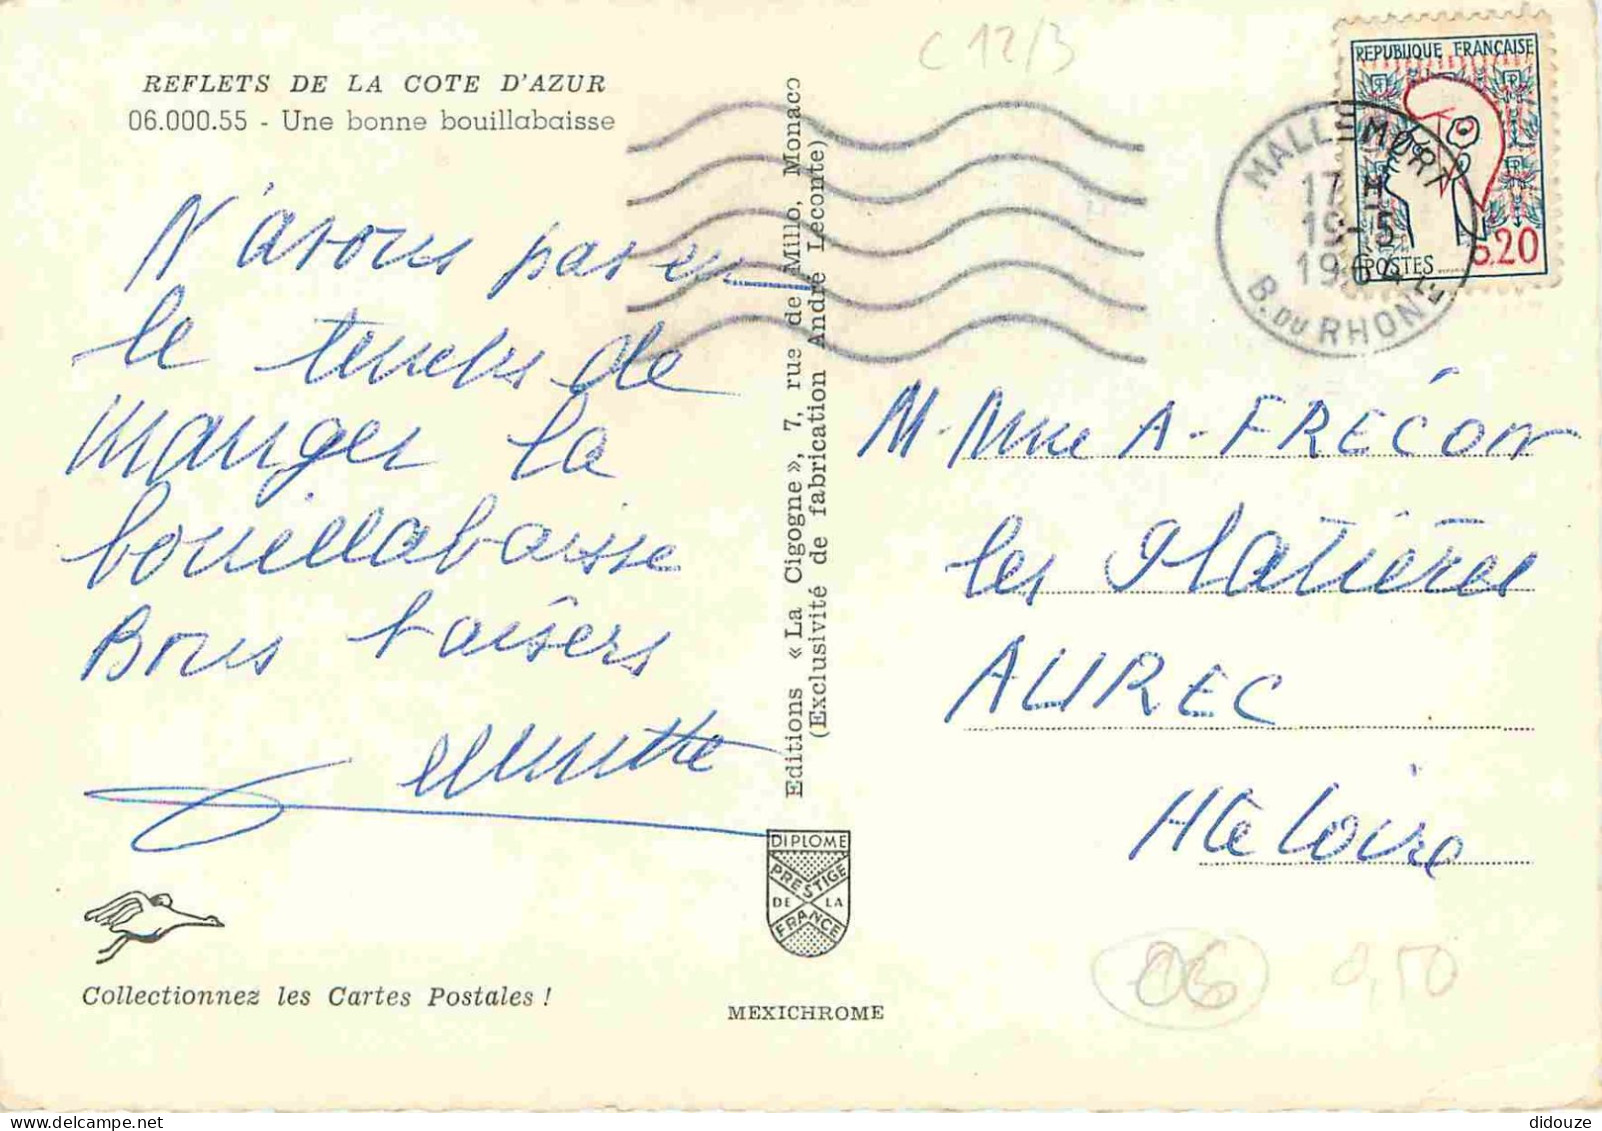 C 12/3
REFLETS DE LA COTE D'AZUR
06.000.55 - Une bonne bouillabaisse
N'avons pas eu
le temps de
manger la
bouillabaisse
Bons baisers
Editions « La Cigogne », 7, rue de Millo, Monaco
(Exclusivité de fabrication André Leconte)
REPUBLIQUE FRANÇAISE
POSTES
0.20
MALLEMORT
17 H
19-5
196
B. DU RHONE
M. Mme A. FRÉCON
les Platières
AUREC
Hte Loire
DIPLOME
PRESTIGE
DE LA
FRANCE
Collectionnez les Cartes Postales !
MEXICHROME
06
0,50
didouze @ delcampe.net